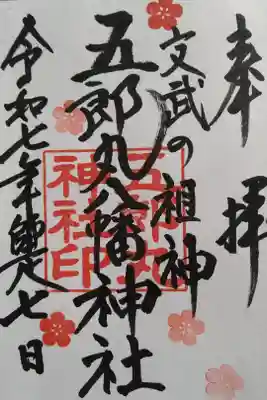 奉拝
文武の祖神
五郎丸八幡神社
五郎丸
神社印
令和七年師走七日